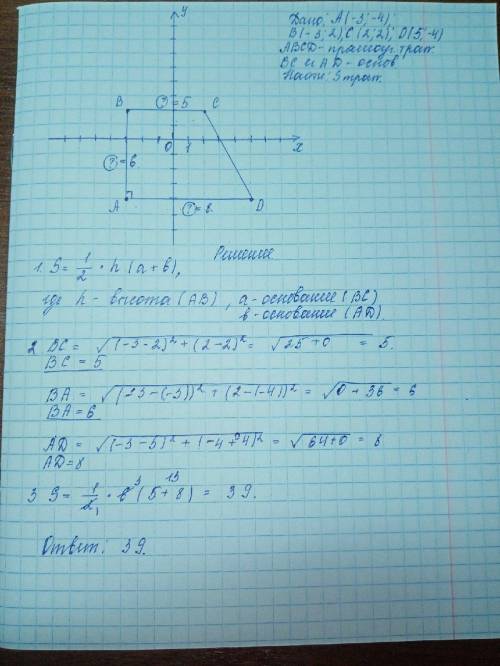 Дано: A(-3;-4);
B(-3;2), C(2;2); D(5;-4)
ABCD - прямоуг. трап.
BC и AD - основ
Найти: S трап.
y
B ? = 5 C
0 1 x
? = 6
A ? = 8 D
Решение
1. S = 1/2 · h (a + b),
где h - высота (AB), a - основание (BC)
b - основание (AD)
2 BC = √(-3-2)² + (2-2)² = √25+0 = 5.
BC = 5
BA = √(-3-(-3))² + (2-(-4))² = √0+36 = 6
BA = 6
AD = √(-3-5)² + (-4+4)² = √64+0 = 8
AD = 8
3 S = 1/2 · 6 (5+8) = 39.
3 13
1
Ответ: 39.